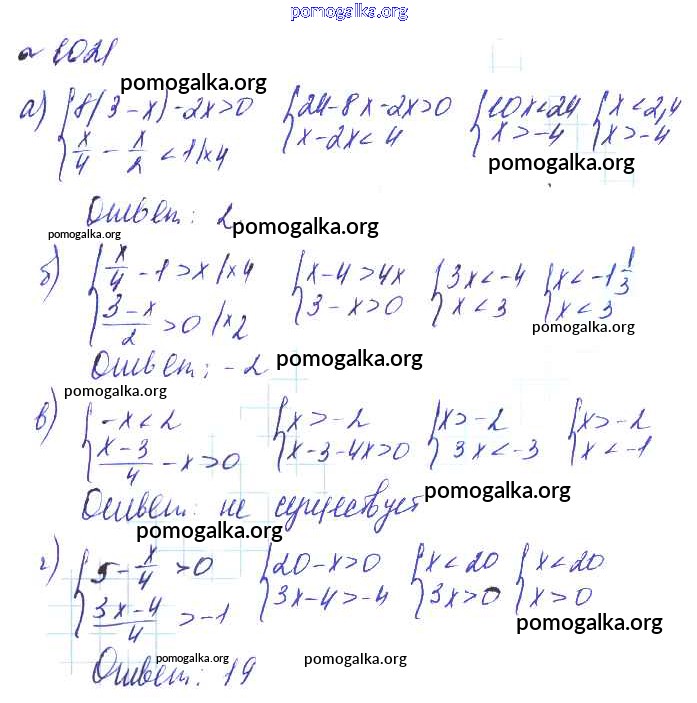 pomogalka.org
№ 1021
pomogalka.org
а) { 8(3-x)-2x>0 { 24-8x-2x>0 { 10x<24 { x<2,4
x/4 - x/2 <1 |x4 x-2x<4 x>-4 x>-4
pomogalka.org
Ответ: 2
pomogalka.org pomogalka.org
б) { x/4 -1>x |x4 { x-4>4x { 3x<-4 { x<-1 1/3
(3-x)/2 >0 |x2 3-x>0 x<3 x<3
pomogalka.org
Ответ: -2
pomogalka.org
pomogalka.org
в) { -x<2 { x>-2 { x>-2 { x>-2
(x-3)/4 -x>0 x-3-4x>0 3x<-3 x<-1
Ответ: не существует
pomogalka.org
pomogalka.org
г) { 5- x/4 >0 { 20-x>0 { x<20 { x<20
(3x-4)/4 >-1 3x-4>-4 3x>0 x>0
pomogalka.org
Ответ: 19
pomogalka.org pomogalka.org